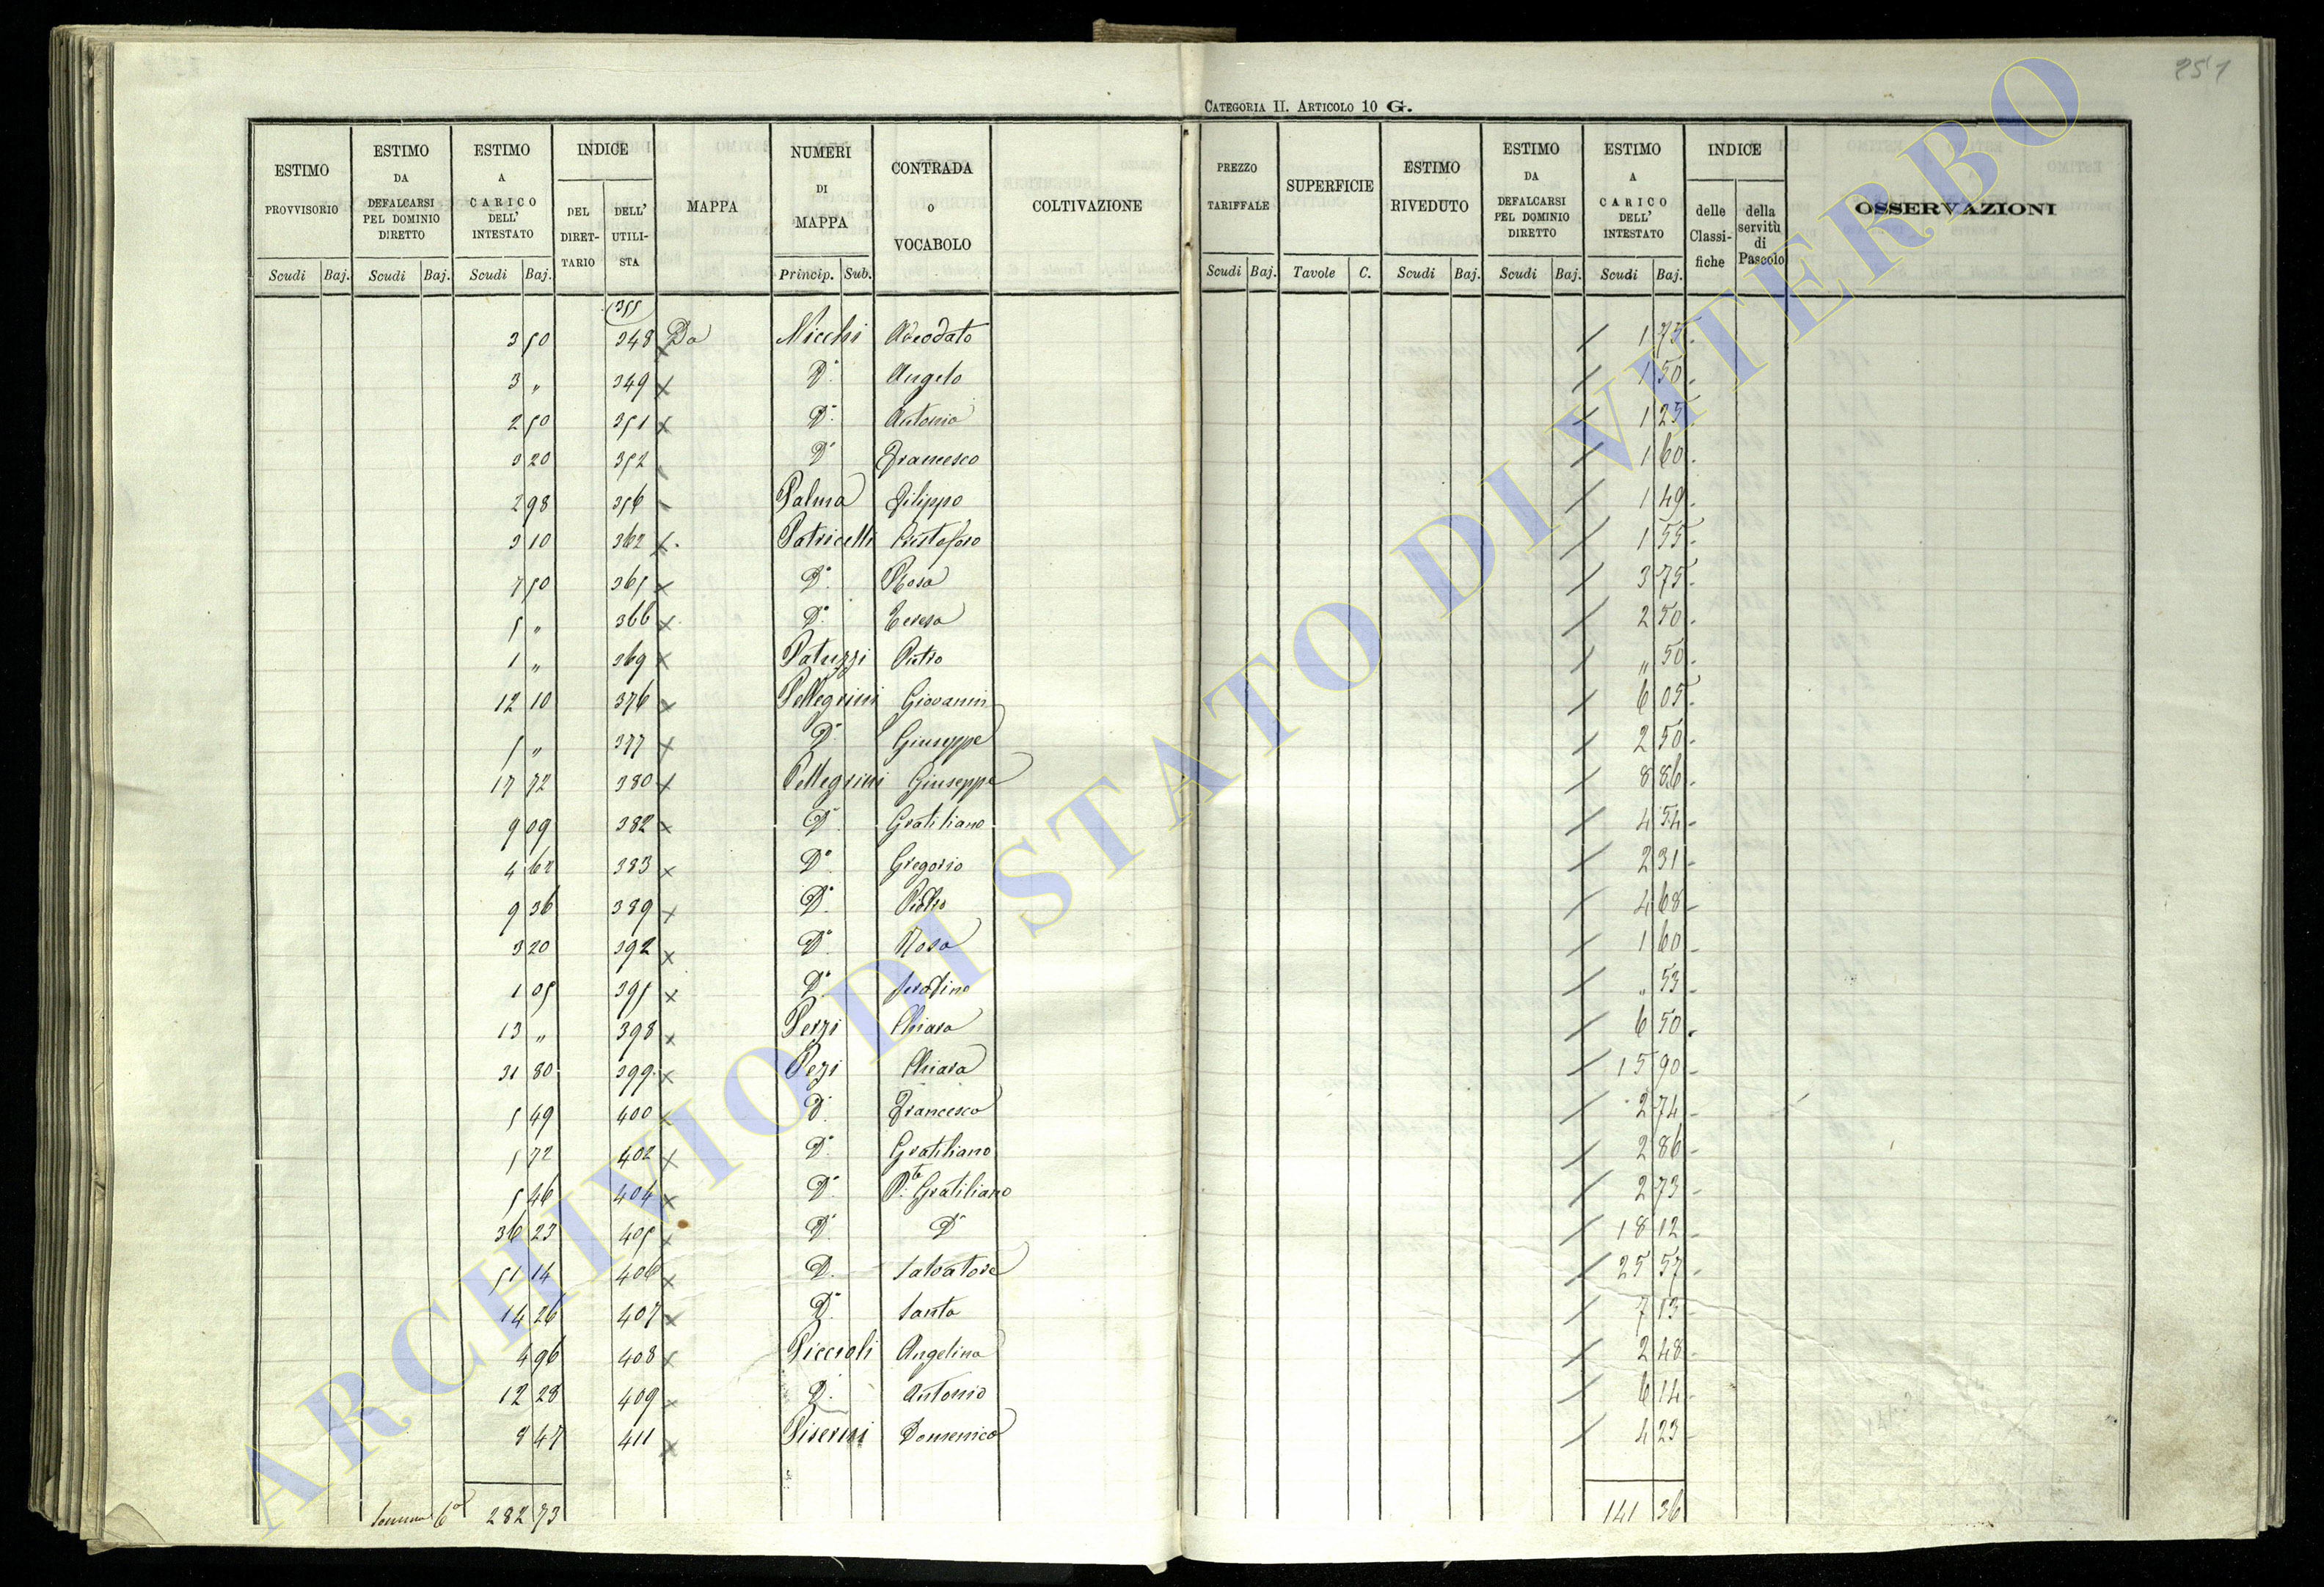 251
CATEGORIA II. ARTICOLO 10 G.
ESTIMO PROVVISORIO
ESTIMO DA DEFALCARSI PEL DOMINIO DIRETTO
ESTIMO A CARICO DELL' INTESTATO
INDICE
DEL DIRET-TARIO
DELL' UTILI-STA
MAPPA
NUMERI DI MAPPA
CONTRADA o VOCABOLO
COLTIVAZIONE
PREZZO TARIFFALE
SUPERFICIE
ESTIMO RIVEDUTO
ESTIMO DA DEFALCARSI PEL DOMINIO DIRETTO
ESTIMO A CARICO DELL' INTESTATO
INDICE
delle Classi-fiche
della servitù di Pascolo
OSSERVAZIONI
Scudi Baj. Scudi Baj. Scudi Baj. Princip. Sub. Scudi Baj. Tavole C. Scudi Baj. Scudi Baj. Scudi Baj.
355
3 50 348 Da Micchi Adeodato 1 75
3 " 349 D.º Angelo 1 50
2 50 351 D.º Antonio 1 25
3 20 352 D.º Francesco 1 60
2 98 356 Palma Filippo 1 49
3 10 362 Patricelli Cristoforo 1 55
7 50 365 D.º Rosa 3 75
5 " 366 D.º Teresa 2 50
1 " 369 Patuzzi Pietro " 50
12 10 376 Pellegrini Giovanni 6 05
5 " 377 D.º Giuseppe 2 50
17 72 380 Pellegrini Giuseppe 8 86
9 09 382 D.º Gratiliano 4 54
4 62 383 D.º Gregorio 2 31
9 36 389 D.º Pietro 4 68
3 20 392 D.º Rosa 1 60
1 05 395 D.º Serafino " 53
13 " 398 Perzi Chiara 6 50
31 80 399 Pezi Chiara 15 90
5 49 400 D.º Francesco 2 74
5 72 402 D.º Gratiliano 2 86
5 46 404 D.º P.te Gratiliano 2 73
36 23 405 D.º D.º 18 12
51 14 406 D.º Salvatore 25 57
14 26 407 D.º Santa 7 13
4 96 408 Piccioli Angelina 2 48
12 28 409 D.º Antonio 6 14
8 47 411 Domenico 4 23
Somma 6ª 282 73 141 36
ARCHIVIO DI STATO DI VITERBO